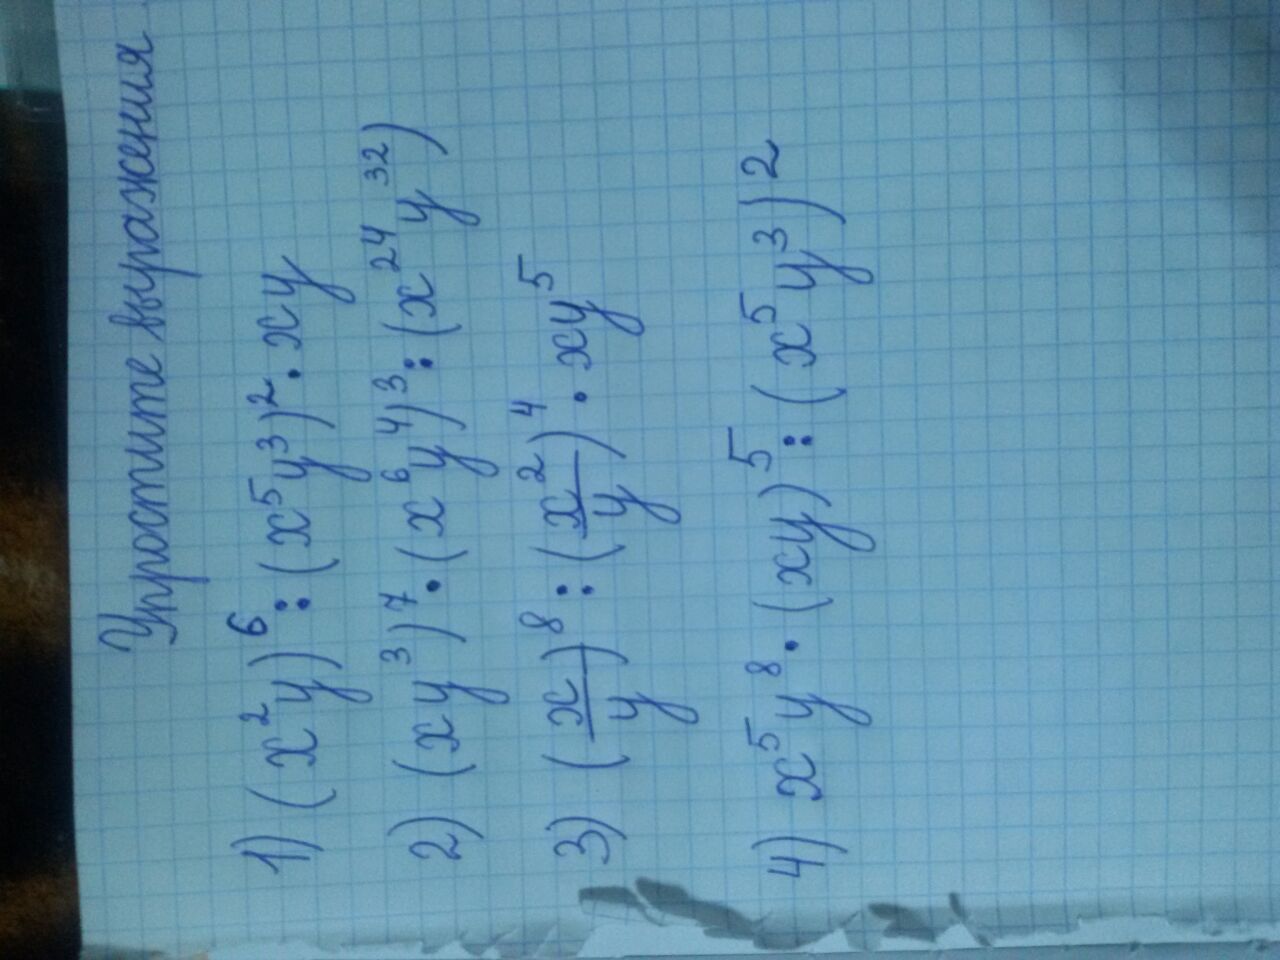 Упростите выражения
1) (x²y)⁶ : (x⁵y³)² · xy
2) (xy³)⁷ · (x⁶y⁴)³ : (x²⁴y³²)
3) (x/y)⁸ : (x²/y)⁴ · xy⁵
4) x⁵y⁸ · (xy)⁵ : (x⁵y³)²